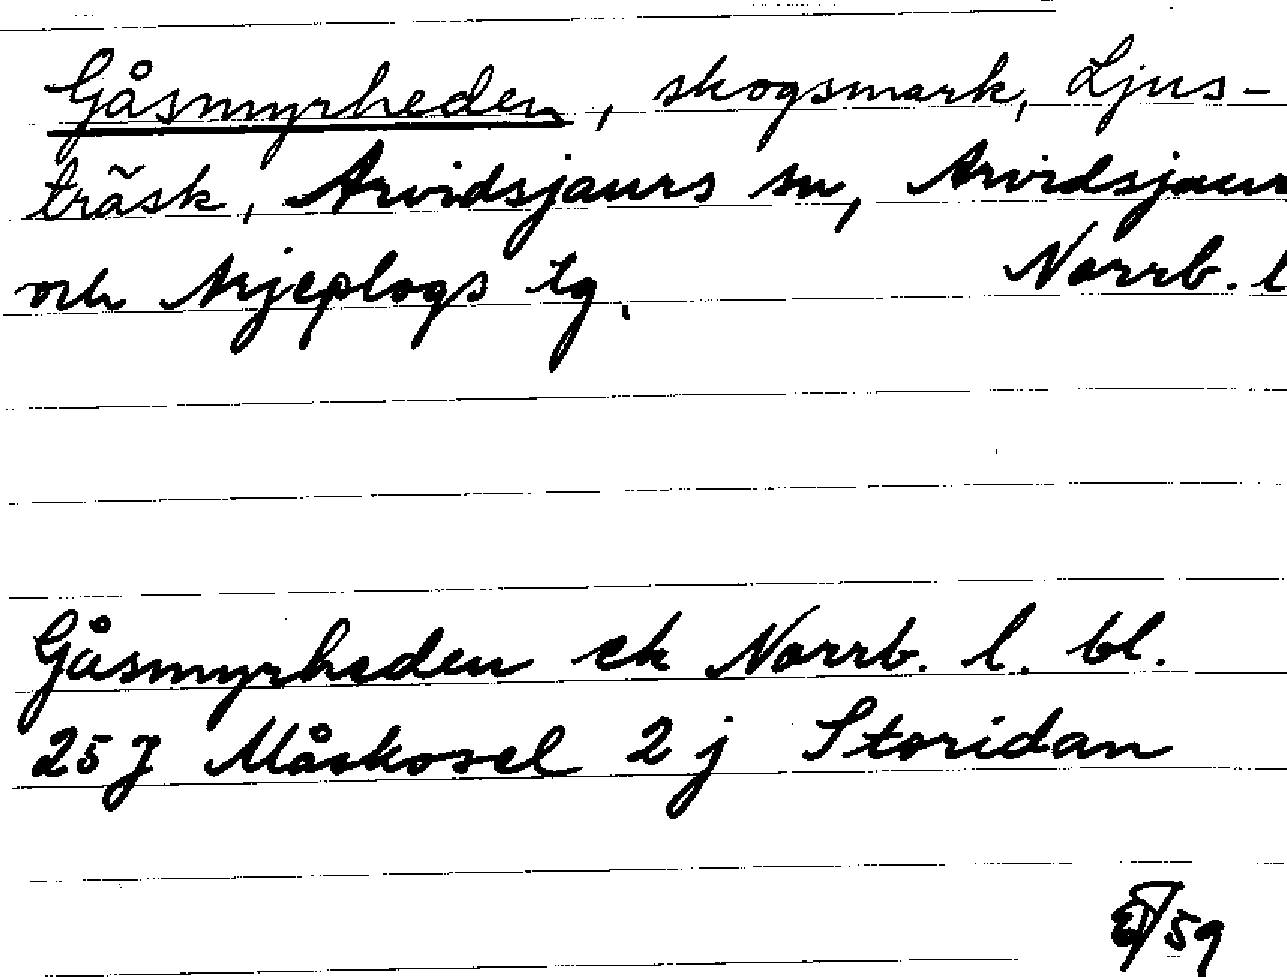 Gåsmyrheden, skogsmark, Ljus-
träsk, Arvidsjaurs sn, Arvidsjaur
och Arjeplogs tg. Norrb. l
Gåsmyrheden ek Norrb. l. bl.
25 J Måskosel 2 j Storidan
59